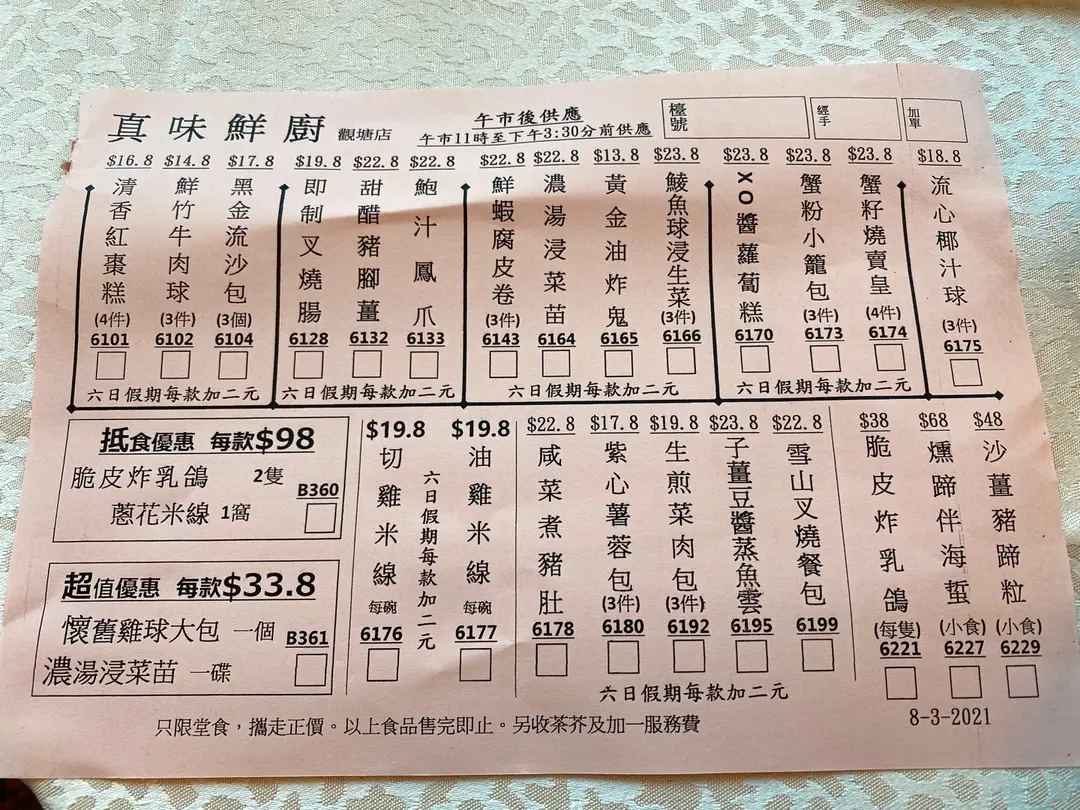 真味鮮廚 觀塘店
午市後供應
午市11時至下午3:30分前供應
檯號
經手
加單
$16.8 清香紅棗糕 (4件) 6101
$14.8 鮮竹牛肉球 (3件) 6102
$17.8 黑金流沙包 (3個) 6104
六日假期每款加二元
$19.8 即制叉燒腸 6128
$22.8 甜醋豬腳薑 6132
$22.8 鮑汁鳳爪 6133
六日假期每款加二元
$22.8 鮮蝦腐皮卷 (3件) 6143
$22.8 濃湯浸菜苗 6164
$13.8 黃金油炸鬼 6165
$23.8 鯪魚球浸生菜 (3件) 6166
六日假期每款加二元
$23.8 XO醬蘿蔔糕 6170
$23.8 蟹粉小籠包 (3件) 6173
$23.8 蟹籽燒賣皇 (4件) 6174
六日假期每款加二元
$18.8 流心椰汁球 (3件) 6175
抵食優惠 每款$98
脆皮炸乳鴿 2隻
蔥花米線 1窩
B360
超值優惠 每款$33.8
懷舊雞球大包 一個
濃湯浸菜苗 一碟
B361
$19.8 切雞米線 每碗 6176
六日假期每款加二元
$19.8 油雞米線 每碗 6177
$22.8 咸菜煮豬肚 6178
$17.8 紫心薯蓉包 (3件) 6180
$19.8 生煎菜肉包 (3件) 6192
$23.8 子薑豆醬蒸魚雲 6195
$22.8 雪山叉燒餐包 6199
六日假期每款加二元
$38 脆皮炸乳鴿 (每隻) 6221
$68 燻蹄伴海蜇 (小食) 6227
$48 沙薑豬蹄粒 (小食) 6229
只限堂食，攜走正價。以上食品售完即止。另收茶芥及加一服務費
8-3-2021